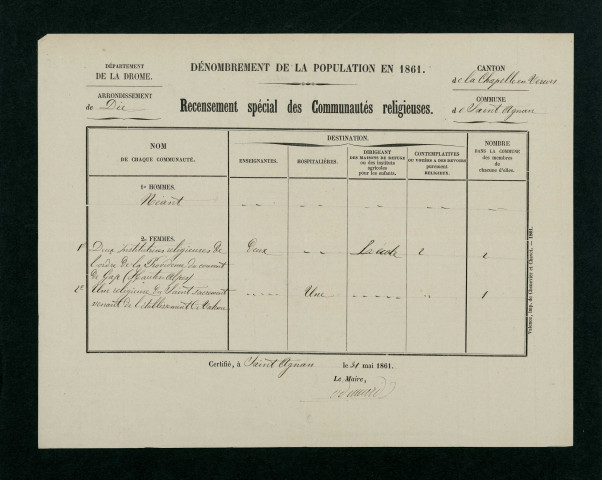 DÉPARTEMENT
DE LA DROME.
ARRONDISSEMENT
de Die
DÉNOMBREMENT DE LA POPULATION EN 1861.
Recensement spécial des Communautés religieuses.
CANTON
de la Chapelle en Vercors
COMMUNE
de Saint Agnan
NOM
DE CHAQUE COMMUNAUTÉ.
DESTINATION.
ENSEIGNANTES.
HOSPITALIÈRES.
DIRIGEANT
DES MAISONS DE REFUGE
ou des instituts
agricoles
pour les enfants.
CONTEMPLATIVES
OU VOUÉES A DES DEVOIRS
purement
RELIGIEUX.
NOMBRE
DANS LA COMMUNE
des membres
de
chacune d'elles.
1° HOMMES.
Néant
2° FEMMES.
1° Deux institutrices religieuses de
l'ordre de la Providence du couvent
de Gap (Hautes Alpes)
Deux
2
2
2° Une religieuse du Saint Sacrement
venant de l'établissement de Valence
Une
1
Certifié, à Saint Agnan le 31 mai 1861.
Le Maire,
Valence, imp. de Chenevier et Chavet. — 1861.